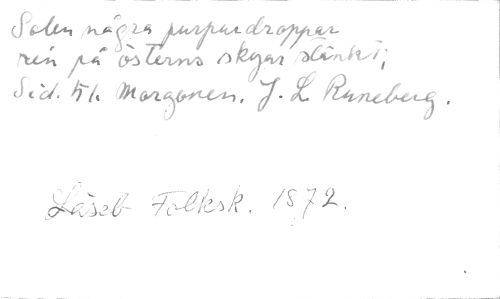 Solen några purpurdroppar
ren på österns skyar stänkt;
Sid. 51. Morgonen. J. L Runeberg.
Läseb Folksk. 1872.